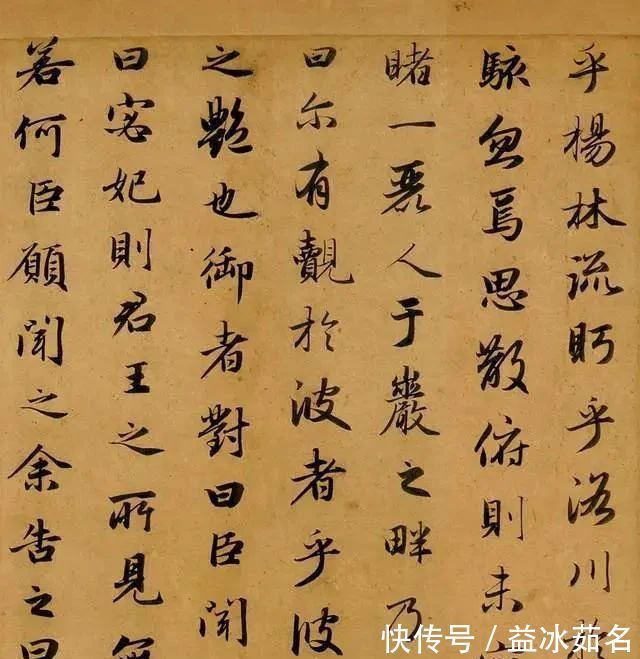 乎楊林流眄乎洛川
駭忽焉思散俯則未
睹一麗人于巖之畔乃
曰尔有覿於彼者乎彼
之艷也御者對曰臣聞
曰宓妃則君王之所見無
若何臣願聞之余告之曰
快传号 / 益冰茹名